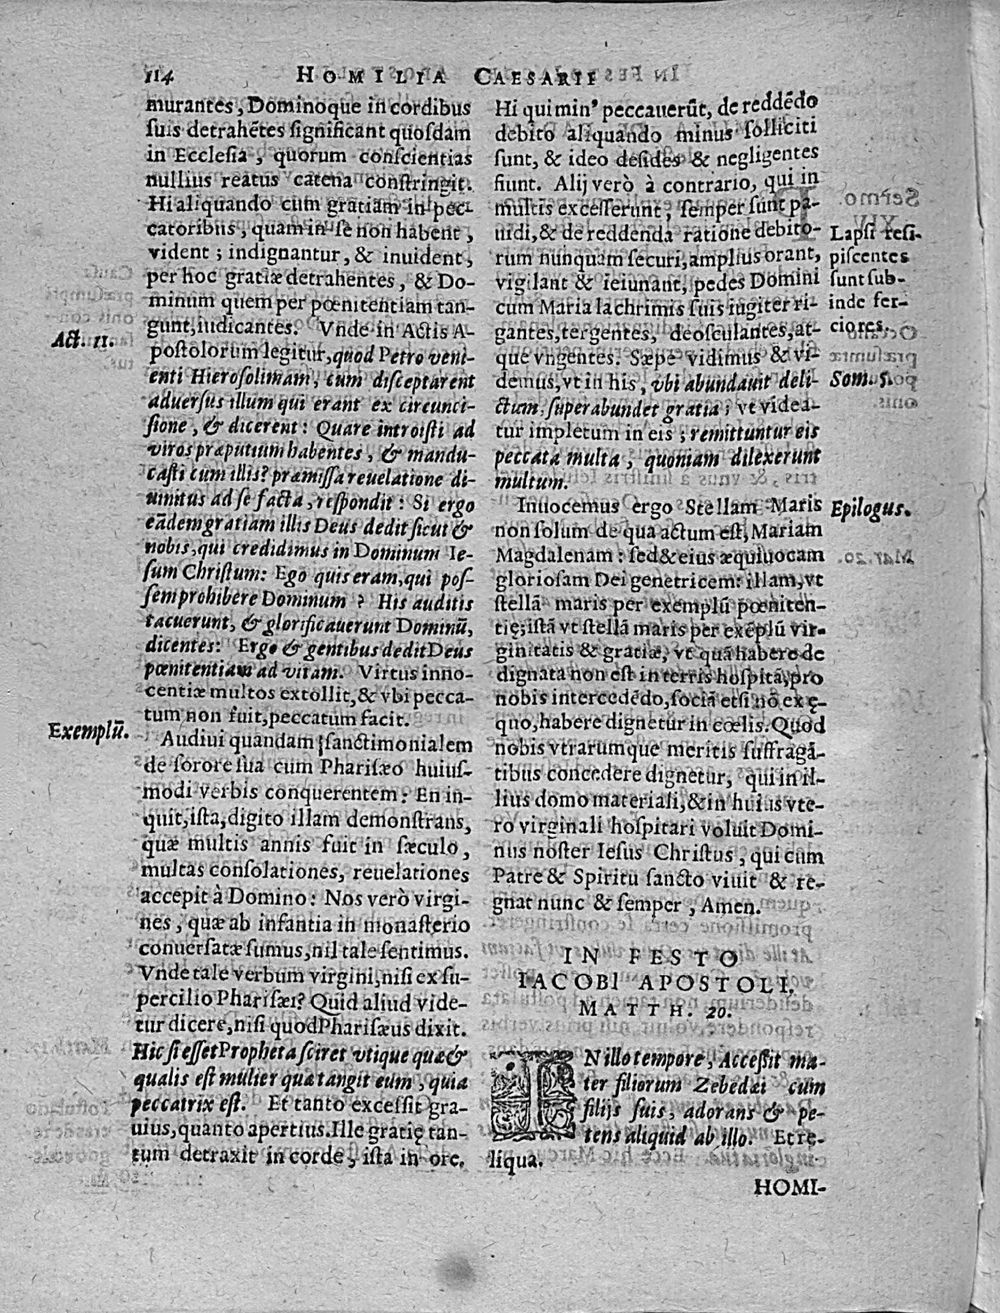 114 HOMILIA CAESARII
murantes, Dominoque in cordibus
suis detrahẽtes significant quosdam
in Ecclesia, quorum conscientias
nullius reatus catena constringit.
Hi aliquando cum gratiam in pec-
catoribus, quam in se non habent,
vident; indignantur, & inuident,
per hoc gratiæ detrahentes, & Do-
minum quem per pœnitentiam tan-
gunt, iudicantes. Vnde in Actis A-
Act. 11.
postolorum legitur, quod Petro veni-
enti Hierosolimam, cum disceptarent
aduersus illum qui erant ex circunci-
sione, & dicerent: Quare introisti ad
viros præputium habentes, & mandu-
casti cum illis? præmissa reuelatione di-
uinitus ad se facta, respondit: Si ergo
eãdem gratiam illis Deus dedit sicut &
nobis, qui credidimus in Dominum Ie-
sum Christum: Ego quis eram, qui pos-
sem prohibere Dominum? His auditis
tacuerunt, & glorificauerunt Dominũ,
dicentes: Ergo & gentibus dedit Deus
pœnitentiam ad vitam. Virtus inno-
centiæ multos extollit, & vbi pecca-
tum non fuit, peccatum facit.
Exemplũ.
Audiui quandam sanctimonialem
de sorore sua cum Pharisæo huius-
modi verbis conquerentem: En in-
quit, ista, digito illam demonstrans,
quæ multis annis fuit in sæculo,
multas consolationes, reuelationes
accepit à Domino: Nos verò virgi-
nes, quæ ab infantia in monasterio
conuersatæ sumus, nil tale sentimus.
Vnde tale verbum virgini, nisi ex su-
percilio Pharisæi? Quid aliud vide-
tur dicere, nisi quod Pharisæus dixit.
Hic si esset Propheta sciret vtique quæ &
qualis est mulier quæ tangit eum, quia
peccatrix est. Et tanto excessit gra-
uius, quanto apertius. Ille gratię tan-
tum detraxit in corde, ista in ore.
Hi qui minꝰ peccauerũt, de reddẽdo
debito aliquando minus solliciti
sunt, & ideo desides & negligentes
fiunt. Alij verò à contrario, qui in
multis excesserunt, semper sunt pa-
uidi, & de reddenda ratione debito-
rum nunquam securi, amplius orant,
vigilant & ieiunant, pedes Domini
cum Maria lachrimis suis iugiter ri-
gantes, tergentes, deosculantes, at-
que vngentes. Sæpe vidimus & vi-
demus, vt in his, vbi abundauit deli-
ctum, superabundet gratia; vt videa-
tur impletum in eis; remittuntur eis
peccata multa, quoniam dilexerunt
multum.
Lapsi resi-
piscentes
sunt sub-
inde fer-
ciores.
Som. 5.
Inuocemus ergo Stellam Maris
Epilogus.
non solum de qua actum est, Mariam
Magdalenam: sed & eius æquiuocam
gloriosam Dei genetricem: illam, vt
stellã maris per exemplũ pœniten-
tię; istã vt stellã maris per exẽplũ vir-
ginitatis & gratiæ, vt quã habere de
dignata non est in terris hospitã, pro
nobis intercedẽdo, sociã etsi nõ ex ę-
quo, habere dignetur in cœlis. Quod
nobis vtrarumque meritis suffragã-
tibus concedere dignetur, qui in il-
lius domo materiali, & in huius vte-
ro virginali hospitari voluit Domi-
nus noster Iesus Christus, qui cum
Patre & Spiritu sancto viuit & re-
gnat nunc & semper, Amen.
IN FESTO
IACOBI APOSTOLI,
MATTH. 20.
IN illo tempore, Accessit ma-
ter filiorum Zebedæi cum
filijs suis, adorans & pe-
tens aliquid ab illo. Et re-
liqua.
HOMI-